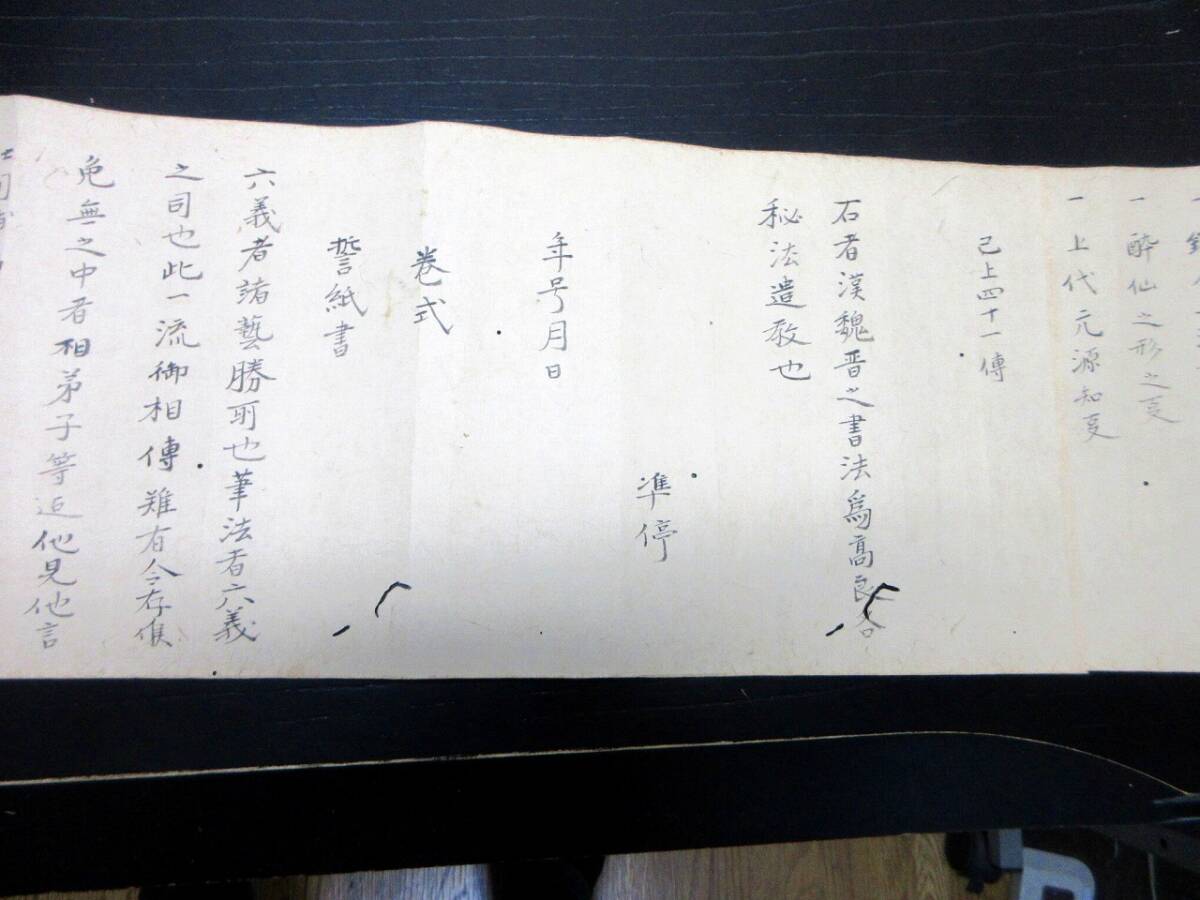 一醉仙之形之叓
一上代元源知叓
已上四十一傳
石者漢魏晋之書法爲高良各
秘法遣教也
準停
年号月日
巻式
誓紙書
六義者諸藝勝所也筆法者六義
之司也此一流御相傳難有令存候
免無之中者相弟子等迄他見他言